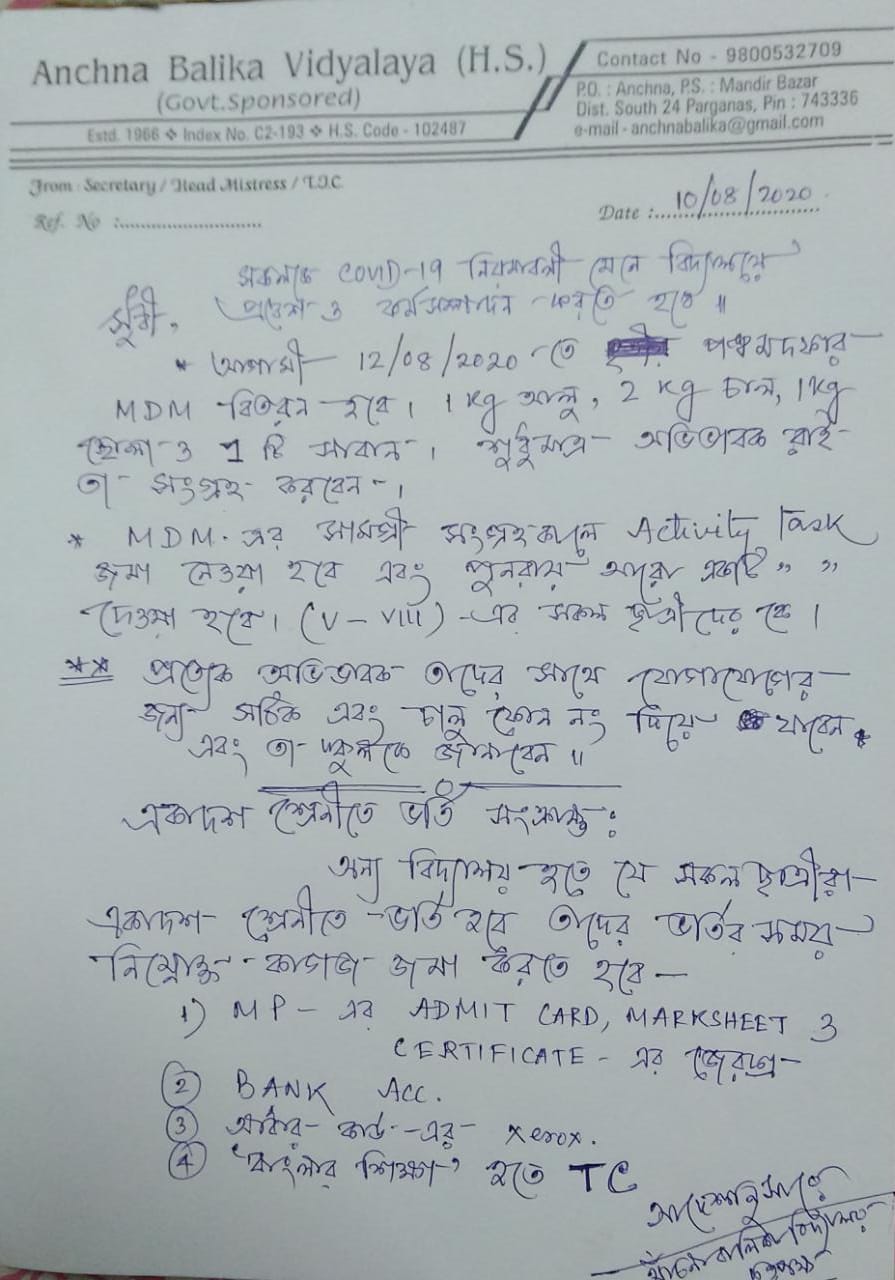 Anchna Balika Vidyalaya (H.S.)
(Govt.Sponsored)
Estd. 1966 ❖ Index No. C2-193 ❖ H.S. Code - 102487
Contact No - 9800532709
P.O. : Anchna, P.S. : Mandir Bazar
Dist. South 24 Parganas, Pin : 743336
e-mail - anchnabalika@gmail.com
From : Secretary / Head Mistress / T.I.C.
Ref. No :............................
Date :.... 10/08/2020
সকলকে COVID-19 নিয়মাবলী মেনে বিদ্যালয়ে
সুধী, প্রবেশ ও কর্মসম্পাদন করতে হবে ॥
* আগামী 12/08/2020 তে পঞ্চমদফার
MDM বিতরন হবে। 1 kg আলু, 2 kg চাল, 1 kg
ছোলা ও 1 টি সাবান। শুধুমাত্র অভিভাবক রাই
তা সংগ্রহ করবেন।
* MDM. এর সামগ্রী সংগ্রহকালে Activity Task
জমা নেওয়া হবে এবং পুনরায় আরো একটি " "
দেওয়া হবে। (V - VIII) - এর সকল ছাত্রীদের কে।
** প্রত্যেক অভিভাবক তাদের সাথে যোগাযোগের
জন্য সঠিক এবং চালু ফোন নং দিয়ে যাবেন
এবং তা স্কুলকে জানাবেন ॥
একাদশ শ্রেনীতে ভর্তি সংক্রান্ত :
অন্য বিদ্যালয় হতে যে সকল ছাত্রীরা
একাদশ শ্রেনীতে ভর্তি হবে তাদের ভর্তির সময়
নিম্নোক্ত কাগজ জমা করতে হবে —
1) MP - এর ADMIT CARD, MARKSHEET ও
CERTIFICATE - এর জেরক্স
2 BANK ACC.
3 আধার কার্ড - এর xerox.
4 'বাংলার শিক্ষা' হতে TC
আদেশানুসারে
বালিকা বিদ্যালয়